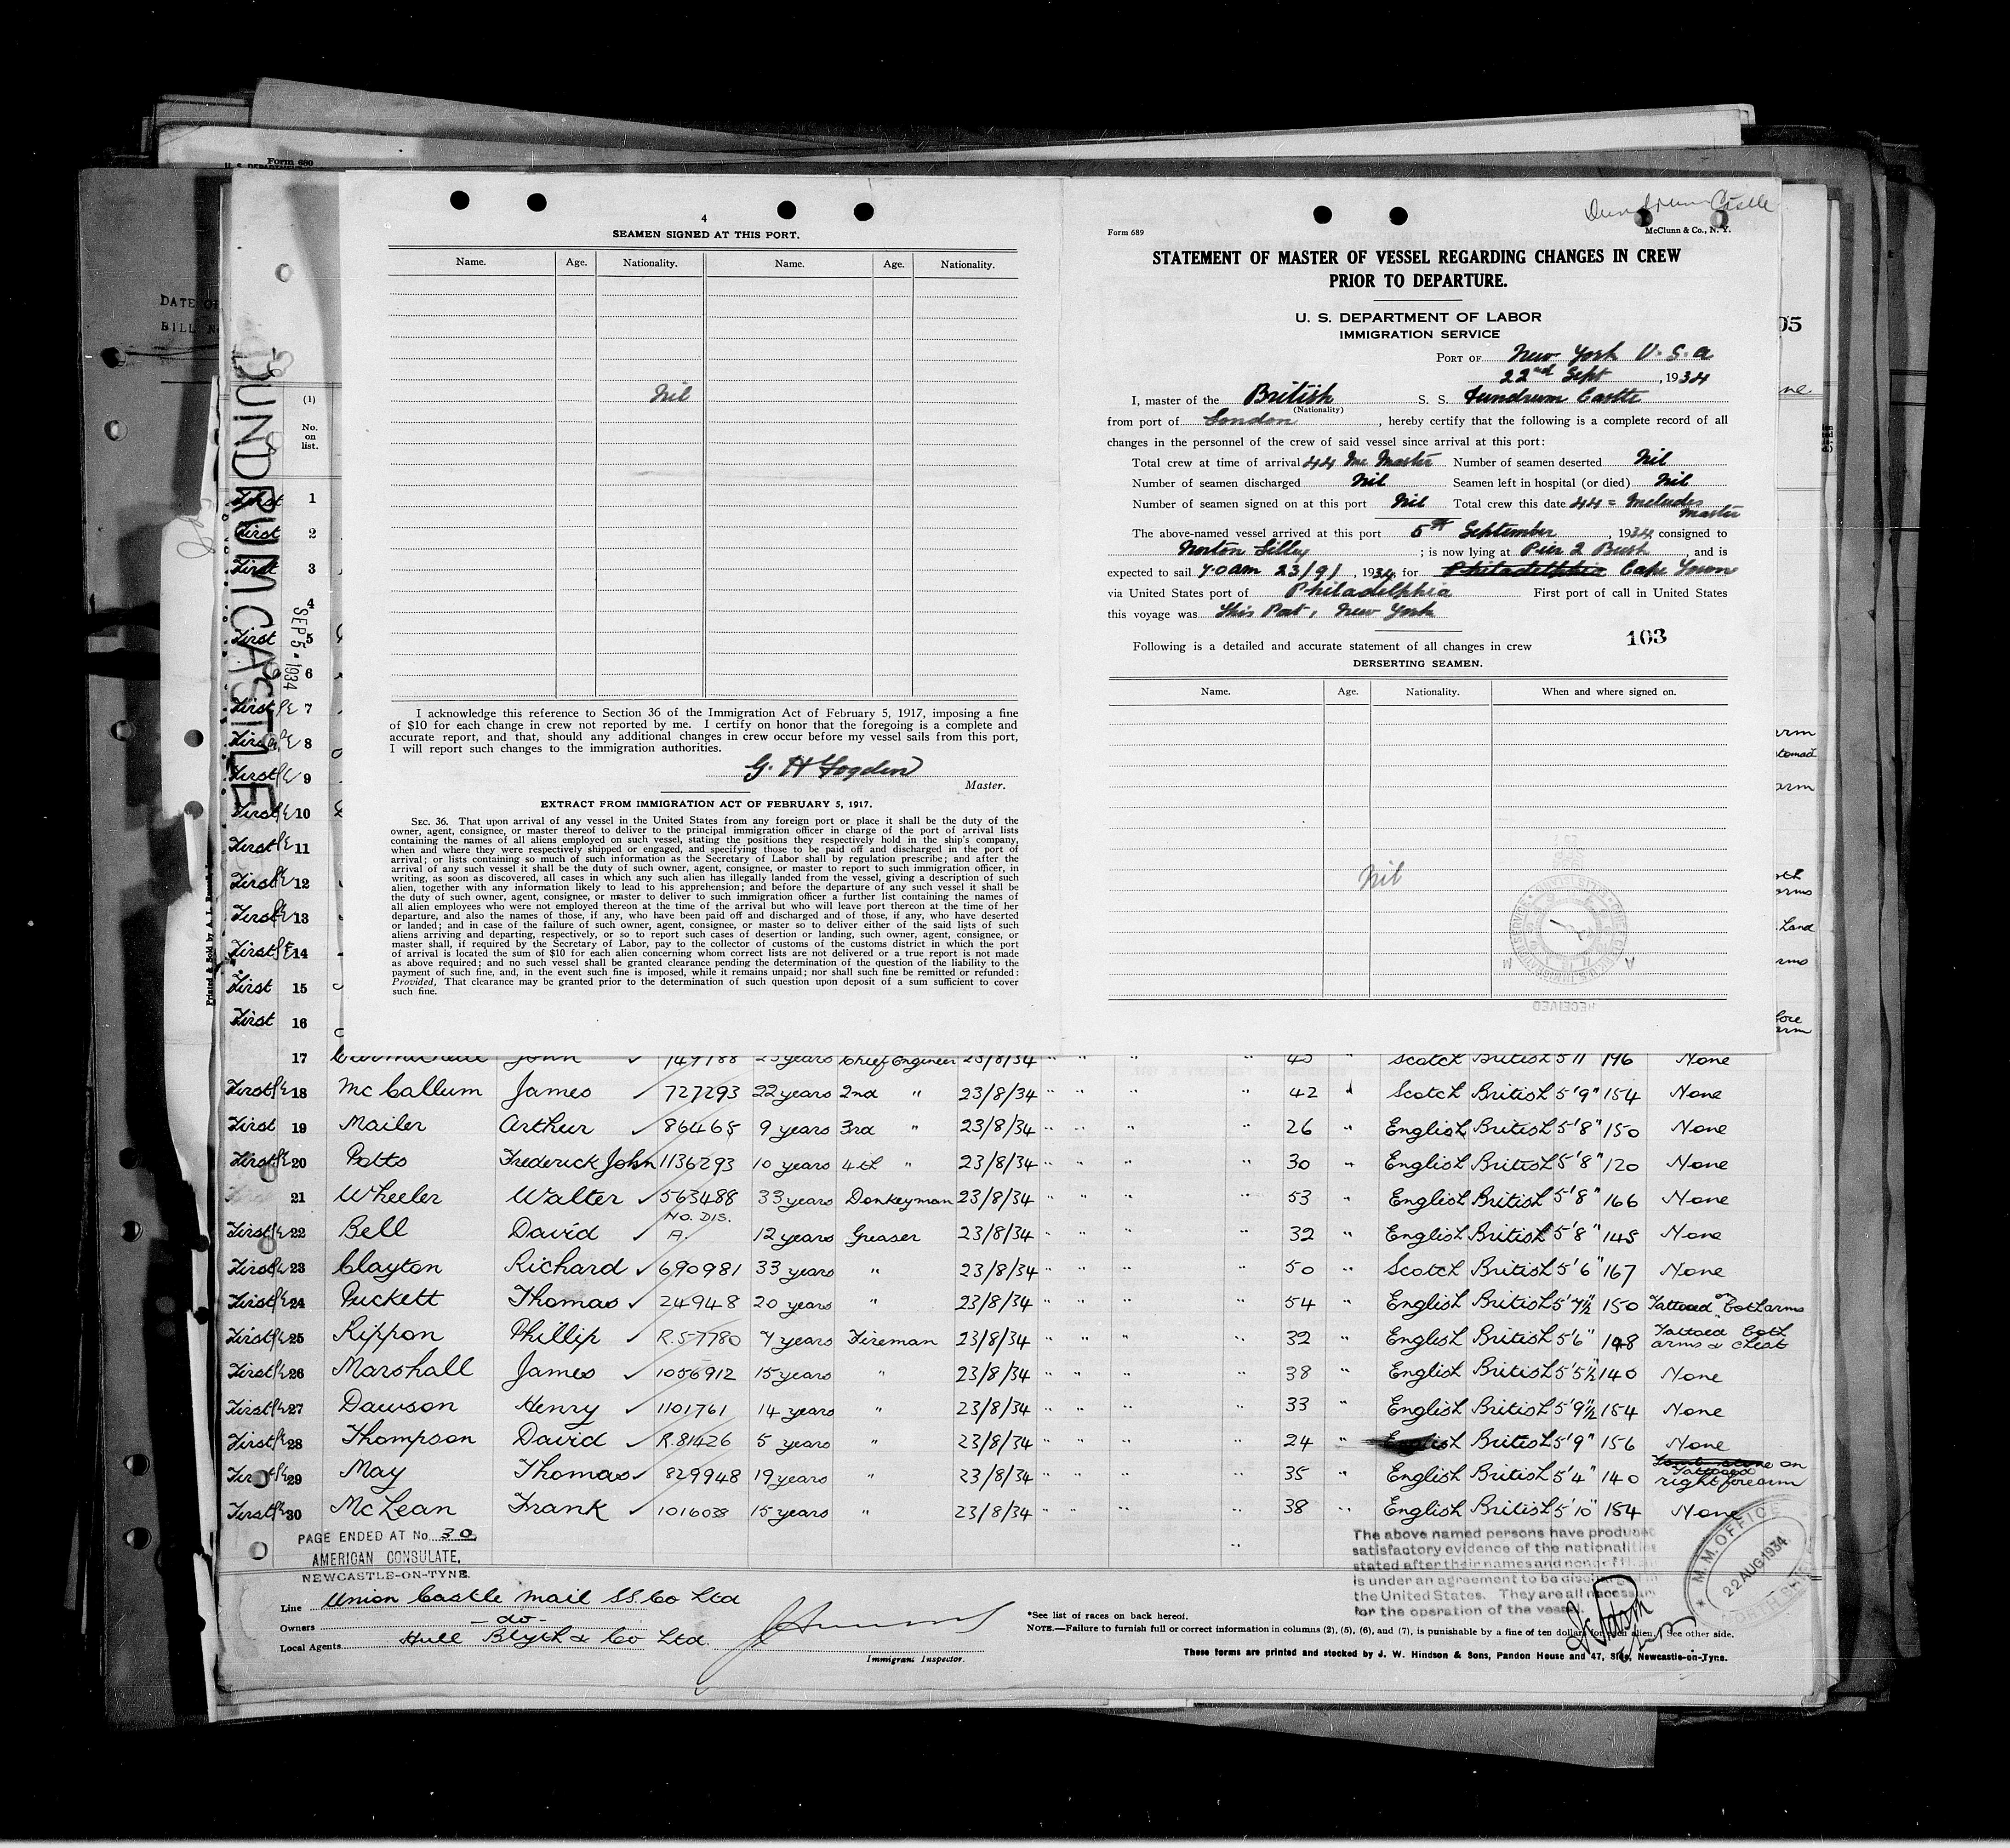 Form 680
DATE OF
BILL No
DUNDRUM CASTLE
SEP 5 - 1934
(1)
No.
on
list.
4
SEAMEN SIGNED AT THIS PORT.
Name. Age. Nationality. Name. Age. Nationality.
Nil
I acknowledge this reference to Section 36 of the Immigration Act of February 5, 1917, imposing a fine
of $10 for each change in crew not reported by me. I certify on honor that the foregoing is a complete and
accurate report, and that, should any additional changes in crew occur before my vessel sails from this port,
I will report such changes to the immigration authorities.
G. H Fogden
Master.
EXTRACT FROM IMMIGRATION ACT OF FEBRUARY 5, 1917.
SEC. 36. That upon arrival of any vessel in the United States from any foreign port or place it shall be the duty of the
owner, agent, consignee, or master thereof to deliver to the principal immigration officer in charge of the port of arrival lists
containing the names of all aliens employed on such vessel, stating the positions they respectively hold in the ship's company,
when and where they were respectively shipped or engaged, and specifying those to be paid off and discharged in the port of
arrival; or lists containing so much of such information as the Secretary of Labor shall by regulation prescribe; and after the
arrival of any such vessel it shall be the duty of such owner, agent, consignee, or master to report to such immigration officer, in
writing, as soon as discovered, all cases in which any such alien has illegally landed from the vessel, giving a description of such
alien, together with any information likely to lead to his apprehension; and before the departure of any such vessel it shall be
the duty of such owner, agent, consignee, or master to deliver to such immigration officer a further list containing the names of
all alien employees who were not employed thereon at the time of the arrival but who will leave port thereon at the time of her
departure, and also the names of those, if any, who have been paid off and discharged and of those, if any, who have deserted
or landed; and in case of the failure of such owner, agent, consignee, or master so to deliver either of the said lists of such
aliens arriving and departing, respectively, or so to report such cases of desertion or landing, such owner, agent, consignee, or
master shall, if required by the Secretary of Labor, pay to the collector of customs of the customs district in which the port
of arrival is located the sum of $10 for each alien concerning whom correct lists are not delivered or a true report is not made
as above required; and no such vessel shall be granted clearance pending the determination of the question of the liability to the
payment of such fine, and, in the event such fine is imposed, while it remains unpaid; nor shall such fine be remitted or refunded:
Provided, That clearance may be granted prior to the determination of such question upon deposit of a sum sufficient to cover
such fine.
Dundrum Castle
Form 689 McClunn & Co., N. Y.
STATEMENT OF MASTER OF VESSEL REGARDING CHANGES IN CREW
PRIOR TO DEPARTURE.
U. S. DEPARTMENT OF LABOR
IMMIGRATION SERVICE
PORT OF New York U.S.A
22nd Sept, 1934
I, master of the British S. S. Dundrum Castle
(Nationality)
from port of London, hereby certify that the following is a complete record of all
changes in the personnel of the crew of said vessel since arrival at this port:
Total crew at time of arrival 44 Inc Master Number of seamen deserted Nil
Number of seamen discharged Nil Seamen left in hospital (or died) Nil
Number of seamen signed on at this port Nil Total crew this date 44 = Includes Master
The above-named vessel arrived at this port 5th September, 1934, consigned to
Norton Lilley; is now lying at Pier 2 Bush, and is
expected to sail 7.0 am 23/9/, 1934, for Philadelphia Cape Town
via United States port of Philadelphia First port of call in United States
this voyage was this Port, New York
103
Following is a detailed and accurate statement of all changes in crew
DERSERTING SEAMEN.
Name. Age. Nationality. When and where signed on.
Nil
RECEIVED
First 1
First 2
First 3
4
First 5
6
First 7
First 8
First 9
First 10
First 11
First 12
First 13
First 14
First 15
First 16
17 Carmichael John 749788 25 years Chief Engineer 23/8/34 " " " " 45 " Scotch British 5'11 196 None
First 18 McCallum James ✓ 727293 22 years 2nd " 23/8/34 " " " " 42 " Scotch British 5'9" 154 None
First 19 Mailer Arthur ✓ 86465 9 years 3rd " 23/8/34 " " " " 26 " English British 5'8" 150 None
First 20 Potts Frederick John 1136293 10 years 4th " 23/8/34 " " " " 30 " English British 5'8" 120 None
21 Wheeler Walter ✓ 563488 33 years Donkeyman 23/8/34 " " " " 53 " English British 5'8" 166 None
First 22 Bell David ✓ NO. DIS. A. 12 years Greaser 23/8/34 " " " " 32 " English British 5'8" 145 None
First 23 Clayton Richard ✓ 690981 33 years " 23/8/34 " " " " 50 " Scotch British 5'6" 167 None
First 24 Puckett Thomas ✓ 24948 20 years " 23/8/34 " " " " 54 " English British 5'7½" 150 Tattooed on both arms
First 25 Rippon Phillip ✓ R.57780 7 years Fireman 23/8/34 " " " " 32 " English British 5'6" 148 Tattoed both arms & chest
First 26 Marshall James ✓ 1056912 15 years " 23/8/34 " " " " 38 " English British 5'5½" 140 None
First 27 Dawson Henry ✓ 1101761 14 years " 23/8/34 " " " " 33 " English British 5'9½" 154 None
First 28 Thompson David ✓ R.81426 5 years " 23/8/34 " " " " 24 " English British 5'9" 156 None
First 29 May Thomas ✓ 829948 19 years " 23/8/34 " " " " 35 " English British 5'4" 140 Tattooed on right forearm
First 30 McLean Frank ✓ 1016038 15 years " 23/8/34 " " " " 38 " English British 5'10" 154 None
PAGE ENDED AT No. 30
AMERICAN CONSULATE,
NEWCASTLE-ON-TYNE.
The above named persons have produced
satisfactory evidence of the nationalities
stated after their names and none of
is under an agreement to be discharged in
the United States. They are all necessary
for the operation of the vessel.
M. M. OFFICE
22 AUG 1934
Line Union Castle Mail SS. Co Ltd
Owners - do -
Local Agents Hull Blyth & Co Ltd.
Immigrant Inspector.
*See list of races on back hereof.
NOTE.—Failure to furnish full or correct information in columns (2), (5), (6), and (7), is punishable by a fine of ten dollars for each alien. See other side.
These forms are printed and stocked by J. W. Hindson & Sons, Pandon House and 47, Side, Newcastle-on-Tyne.